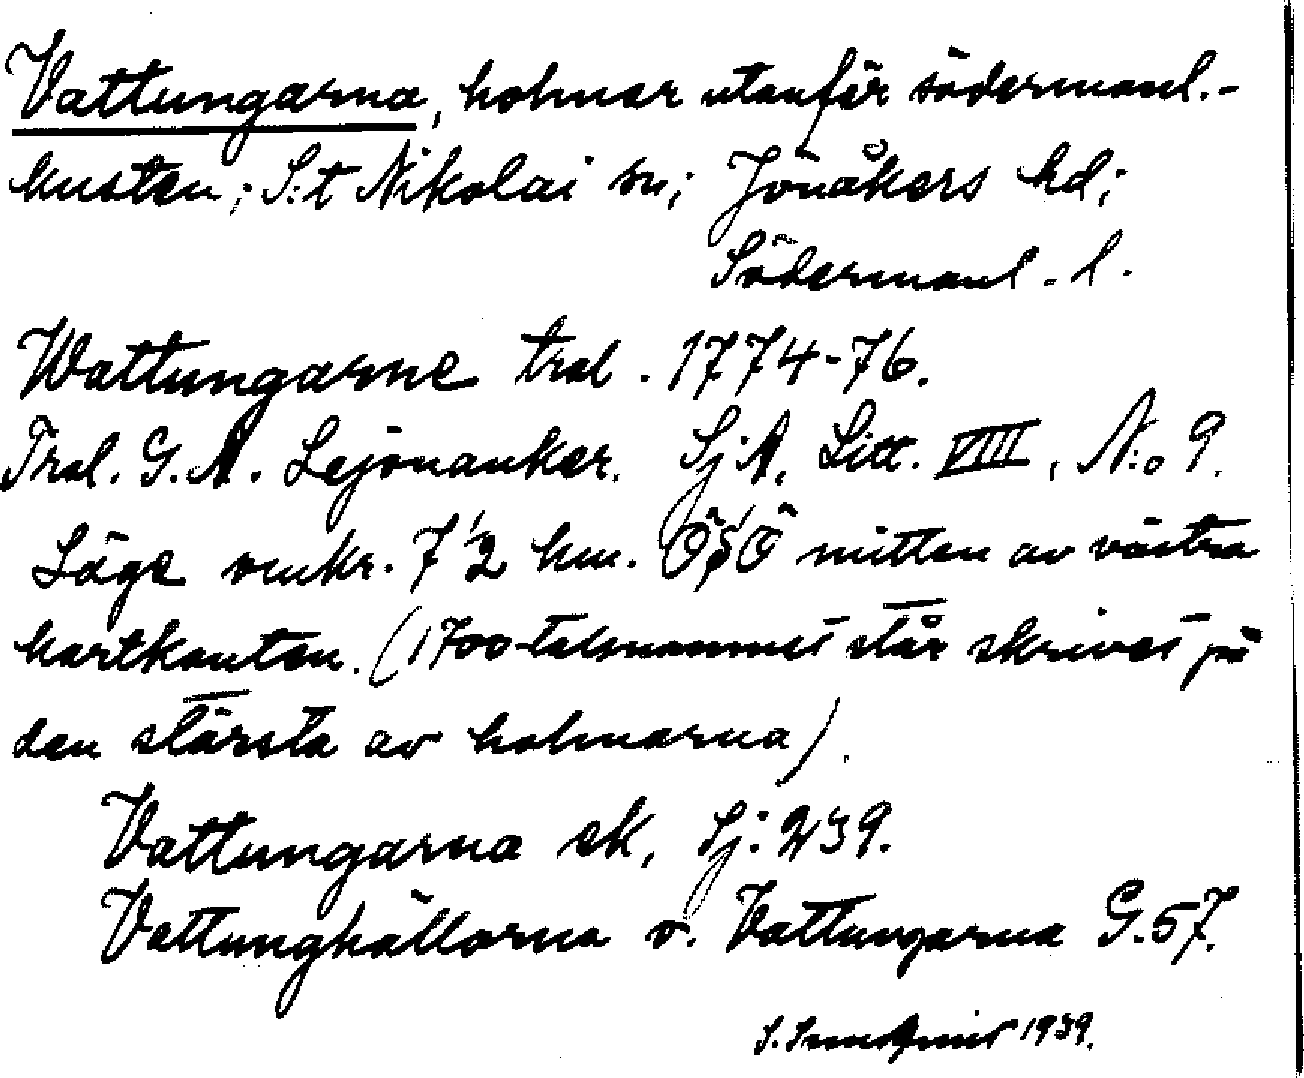 Vattungarna, holmar utanför södermanl.-
kusten; S:t Nikolai sn; Jönåkers hd;
Södermanl. l.
Wattungarne tral. 1774-76.
Tral. G. A. Lejonanker. SjA, Litt. VIII, N:o 9.
Läge omkr. 7 1/2 km. ÖSÖ mitten av västra
kartkanten. (1700-talsnamnet står skrivet på
den största av holmarna).
Vattungarna ek, Sj: 239.
Vattunghällorna o. Vattungarna G. 57.
S. Sundqvist 1939.